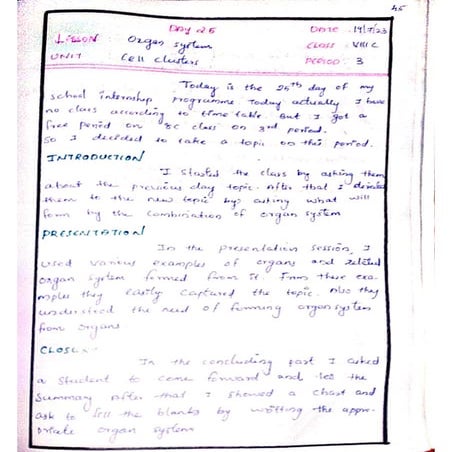 45
DAY 25 DATE : 19/7/23
LESSON : Organ system CLASS : VIII C
UNIT : Cell clusters PERIOD : 3
Today is the 25th day of my
school internship programme. Today actually I have
no class according to time table. But I got a
free period on 8C class on 3rd period.
So I decided to take a topic on this period.
INTRODUCTION
I started the class by asking them
about the previous day topic. After that I
them to the new topic by asking what will
form by the combination of organ system
PRESENTATION
In the presentation session, I
used various examples of organs and related
organ system formed from it. From these exa-
mples they easily captured the topic. Also they
understood the need of forming organ system
from organs
In the concluding part I asked
a student to come forward and the
summary. After that I showed a chart and
ask to the blanks by writting the appro-
priate organ system